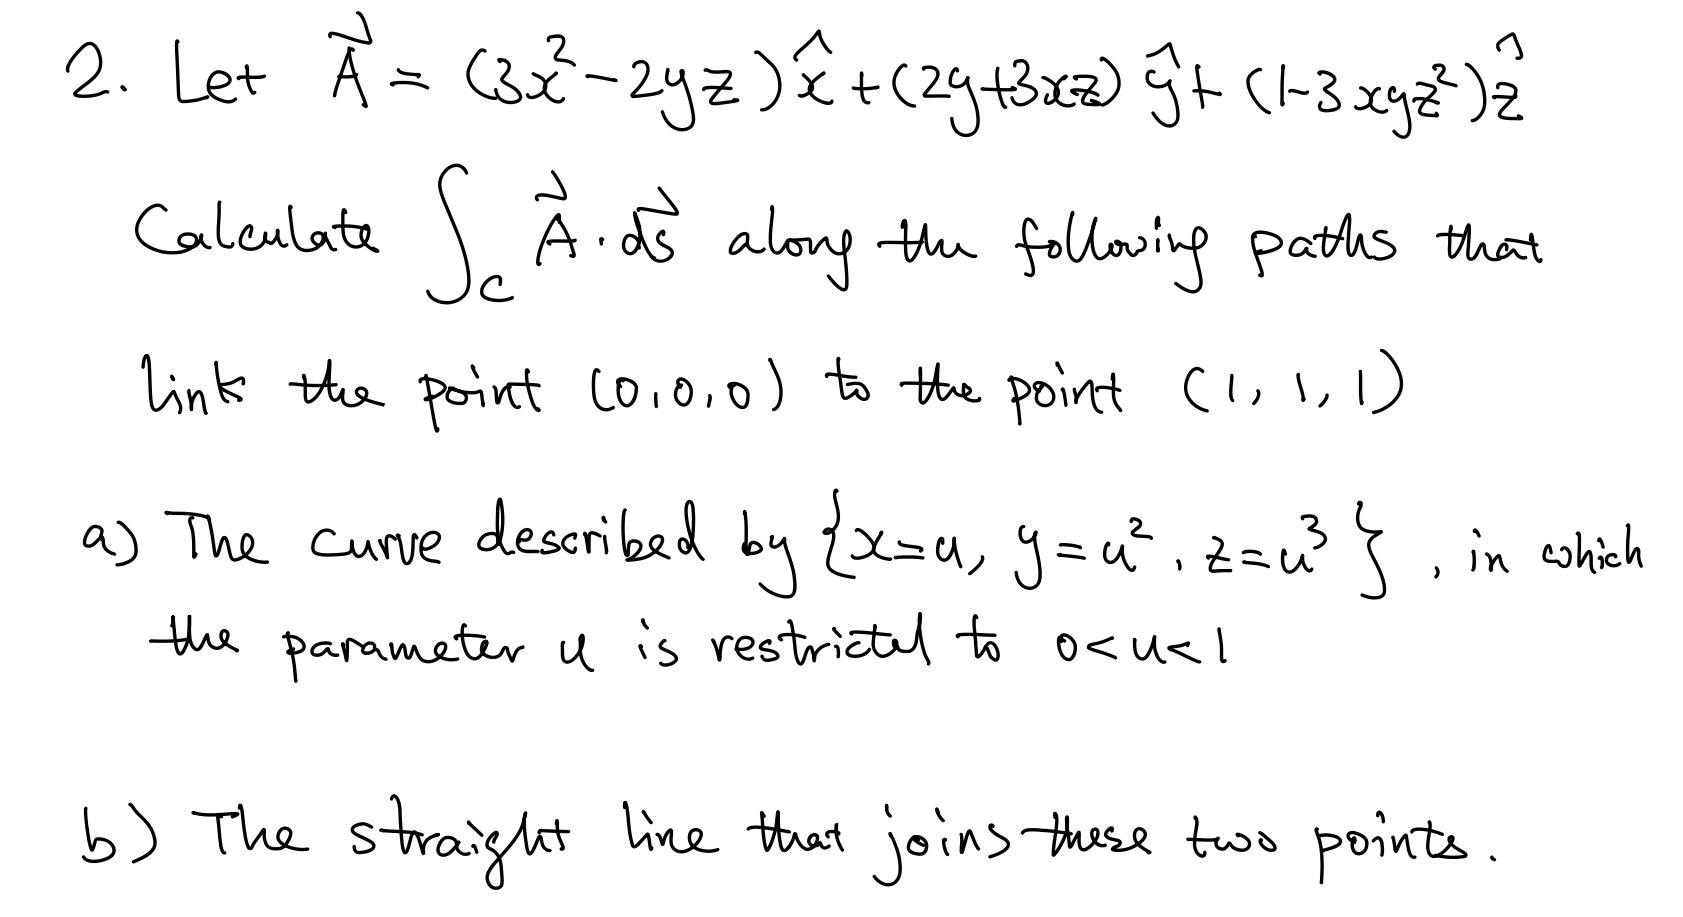 2. Let A⃗ = (3x²-2yz)x̂+(2y+3xz)ŷ+(1-3xyz²)ẑ
Calculate ∫_C A⃗·ds⃗ along the following paths that
link the point (0,0,0) to the point (1,1,1)
a) The curve described by {x=u, y=u², z=u³}, in which
the parameter u is restricted to 0<u<1
b) The straight line that joins these two points.